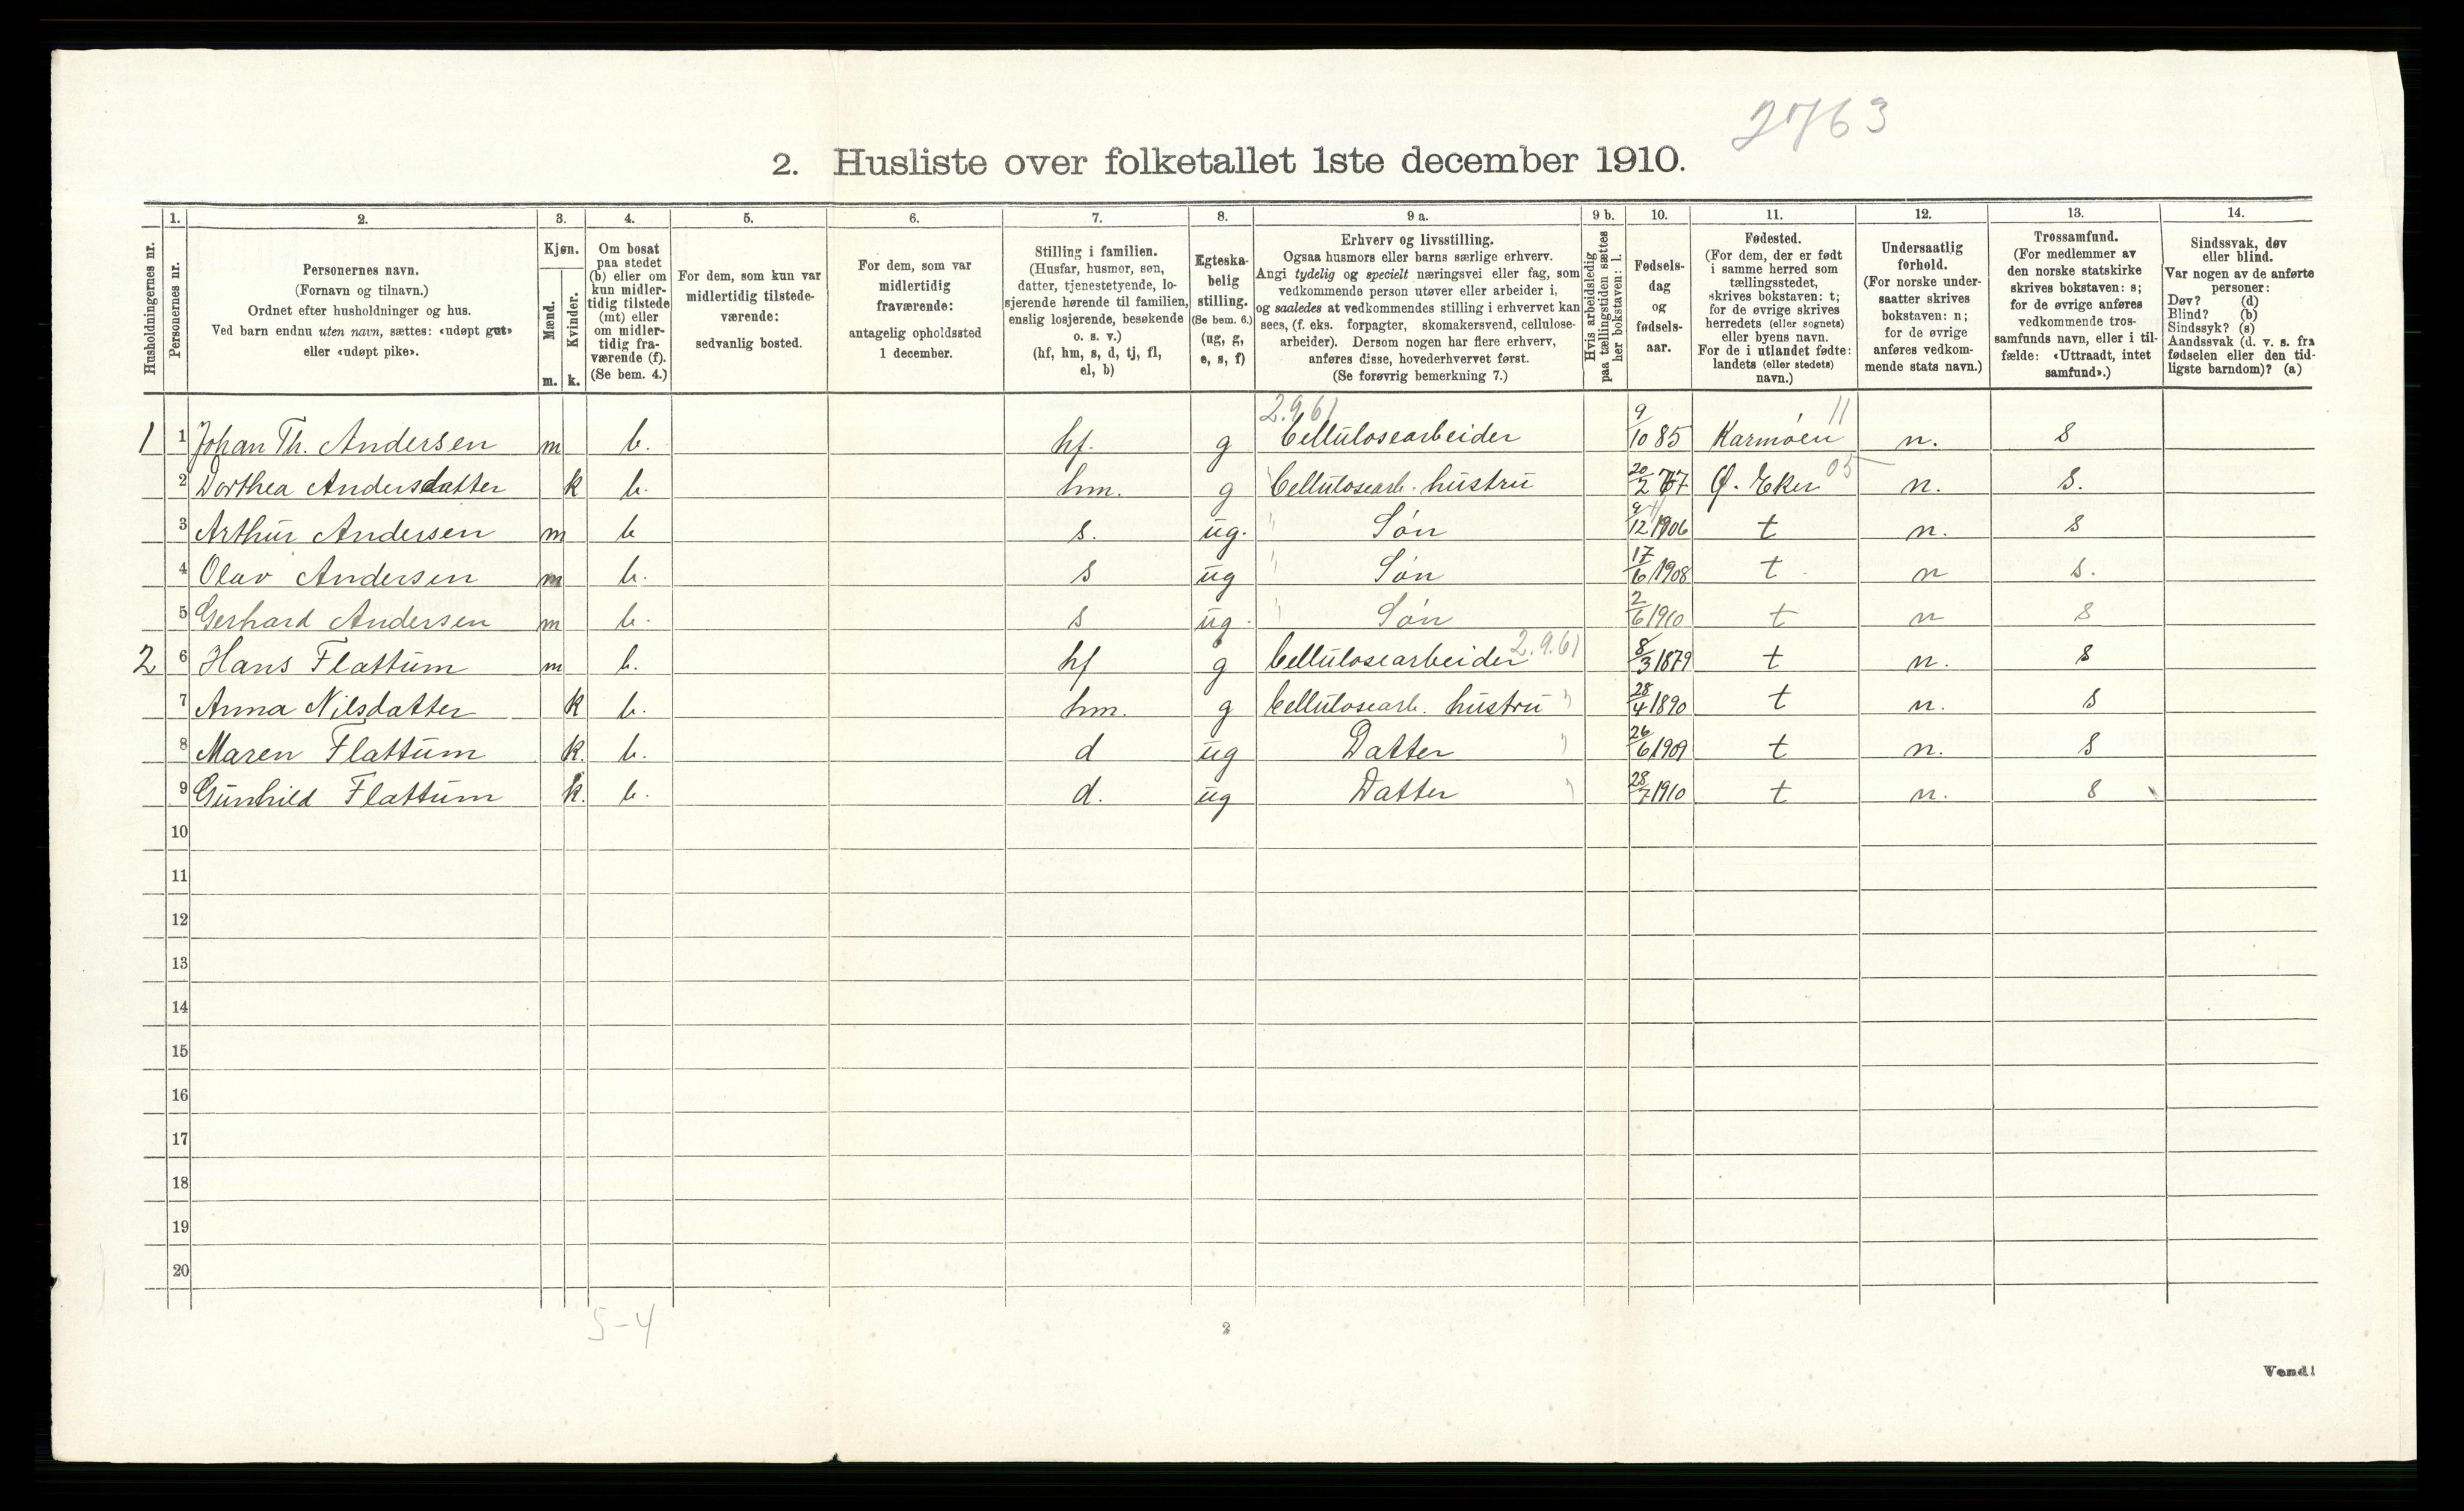 2763
2. Husliste over folketallet 1ste december 1910.
Husholdningernes nr.
1. Personernes nr.
2. Personernes navn.
(Fornavn og tilnavn.)
Ordnet efter husholdninger og hus.
Ved barn endnu uten navn, sættes: «udøpt gut»
eller «udøpt pike».
3. Kjøn.
Mænd. Kvinder.
m. k.
4. Om bosat
paa stedet
(b) eller om
kun midler-
tidig tilstede
(mt) eller
om midler-
tidig fra-
værende (f).
(Se bem. 4.)
5. For dem, som kun var
midlertidig tilstede-
værende:
sedvanlig bosted.
6. For dem, som var
midlertidig
fraværende:
antagelig opholdssted
1 december.
7. Stilling i familien.
(Husfar, husmor, søn,
datter, tjenestetyende, lo-
sjerende hørende til familien,
enslig losjerende, besøkende
o. s. v.)
(hf, hm, s, d, tj, fl,
el, b)
8. Egteska-
belig
stilling.
(Se bem. 6.)
(ug, g,
e, s, f)
9 a. Erhverv og livsstilling.
Ogsaa husmors eller barns særlige erhverv.
Angi tydelig og specielt næringsvei eller fag, som
vedkommende person utøver eller arbeider i,
og saaledes at vedkommendes stilling i erhvervet kan
sees, (f. eks. forpagter, skomakersvend, cellulose-
arbeider). Dersom nogen har flere erhverv,
anføres disse, hovederhvervet først.
(Se forøvrig bemerkning 7.)
9 b. Hvis arbeidsledig
paa tællingstiden sættes
her bokstaven: l.
10. Fødsels-
dag
og
fødsels-
aar.
11. Fødested.
(For dem, der er født
i samme herred som
tællingsstedet,
skrives bokstaven: t;
for de øvrige skrives
herredets (eller sognets)
eller byens navn.
For de i utlandet fødte:
landets (eller stedets)
navn.)
12. Undersaatlig
forhold.
(For norske under-
saatter skrives
bokstaven: n;
for de øvrige
anføres vedkom-
mende stats navn.)
13. Trossamfund.
(For medlemmer av
den norske statskirke
skrives bokstaven: s;
for de øvrige anføres
vedkommende tros-
samfunds navn, eller i til-
fælde: «Uttraadt, intet
samfund».)
14. Sindssvak, døv
eller blind.
Var nogen av de anførte
personer:
Døv? (d)
Blind? (b)
Sindssyk? (s)
Aandssvak (d. v. s. fra
fødselen eller den tid-
ligste barndom)? (a)
2.9.61 11
1 1 Johan Th. Andersen m b. hf. g Cellulosearbeider 9/10 85 Karmøen n. s
2 Dorthea Andersdatter k b. hm. g Cellulosearb. hustru 20/2 77 Ø. Eker 05 n. s.
3 Arthur Andersen m b s. ug. " Søn 9/12 1906 t n. s
4 Olav Andersen m b. s ug " Søn 17/6 1908 t n s.
5 Gerhard Andersen m b. s ug. " Søn 2/6 1910 t n s
2 6 Hans Flattum m b. hf g Cellulosearbeider 2.9.61 8/3 1879 t n. s
7 Anna Nilsdatter k b. hm. g Cellulosearb. hustru " 28/4 1890 t n. s
8 Maren Flattum k. b. d ug Datter " 26/6 1909 t n. s
9 Gunhild Flattum k. b. d. ug Datter " 28/7 1910 t n. s
10
11
12
13
14
15
16
17
18
19
20
5-4
2
Vend!